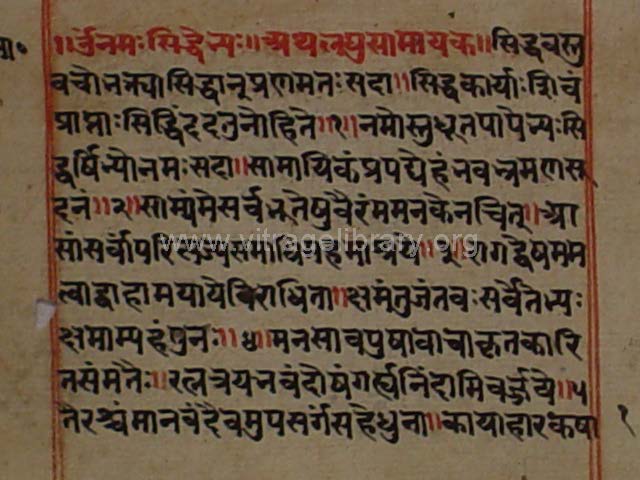 ॥ ॐ नमः सिद्धेभ्यः ॥ अथ लघुसामायकं ॥ सिद्धवस्तु
वचो नक्त्या सिद्धान् प्रणमतः सदा ॥ सिद्धकार्याः शिवं
प्राप्ताः सिद्धिं ददतु नो हिते ॥ १ ॥ नमोस्तु धूतपापेभ्यः सि
द्धर्षिभ्यो नमः सदा ॥ सामायिकं प्रपद्येहं नवभ्रमणसू
दनं ॥ २ ॥ साम्यं मे सर्वभूतेषु वैरं मम न केनचित् ॥ आ
सां सर्वां परित्यज्य समाधिमहमाश्रये ॥ ३ ॥ रागद्वेषमम
त्वाद्वा हा मया ये विराधिता ॥ क्षमंतु जंतवः सर्वे तेभ्यः
क्षमाम्यहं पुनः ॥ ४ ॥ मनसा वपुषा वाचा कृतकारि
तसंमतैः ॥ रत्नत्रयनवं दोषं गर्ह्ये निंदामि वर्ज्जये ॥ ५
तैरश्चं मानवं दैवमुपसर्गं सहेधुना ॥ कायाहारकषा
१
www.vitragelibrary.org